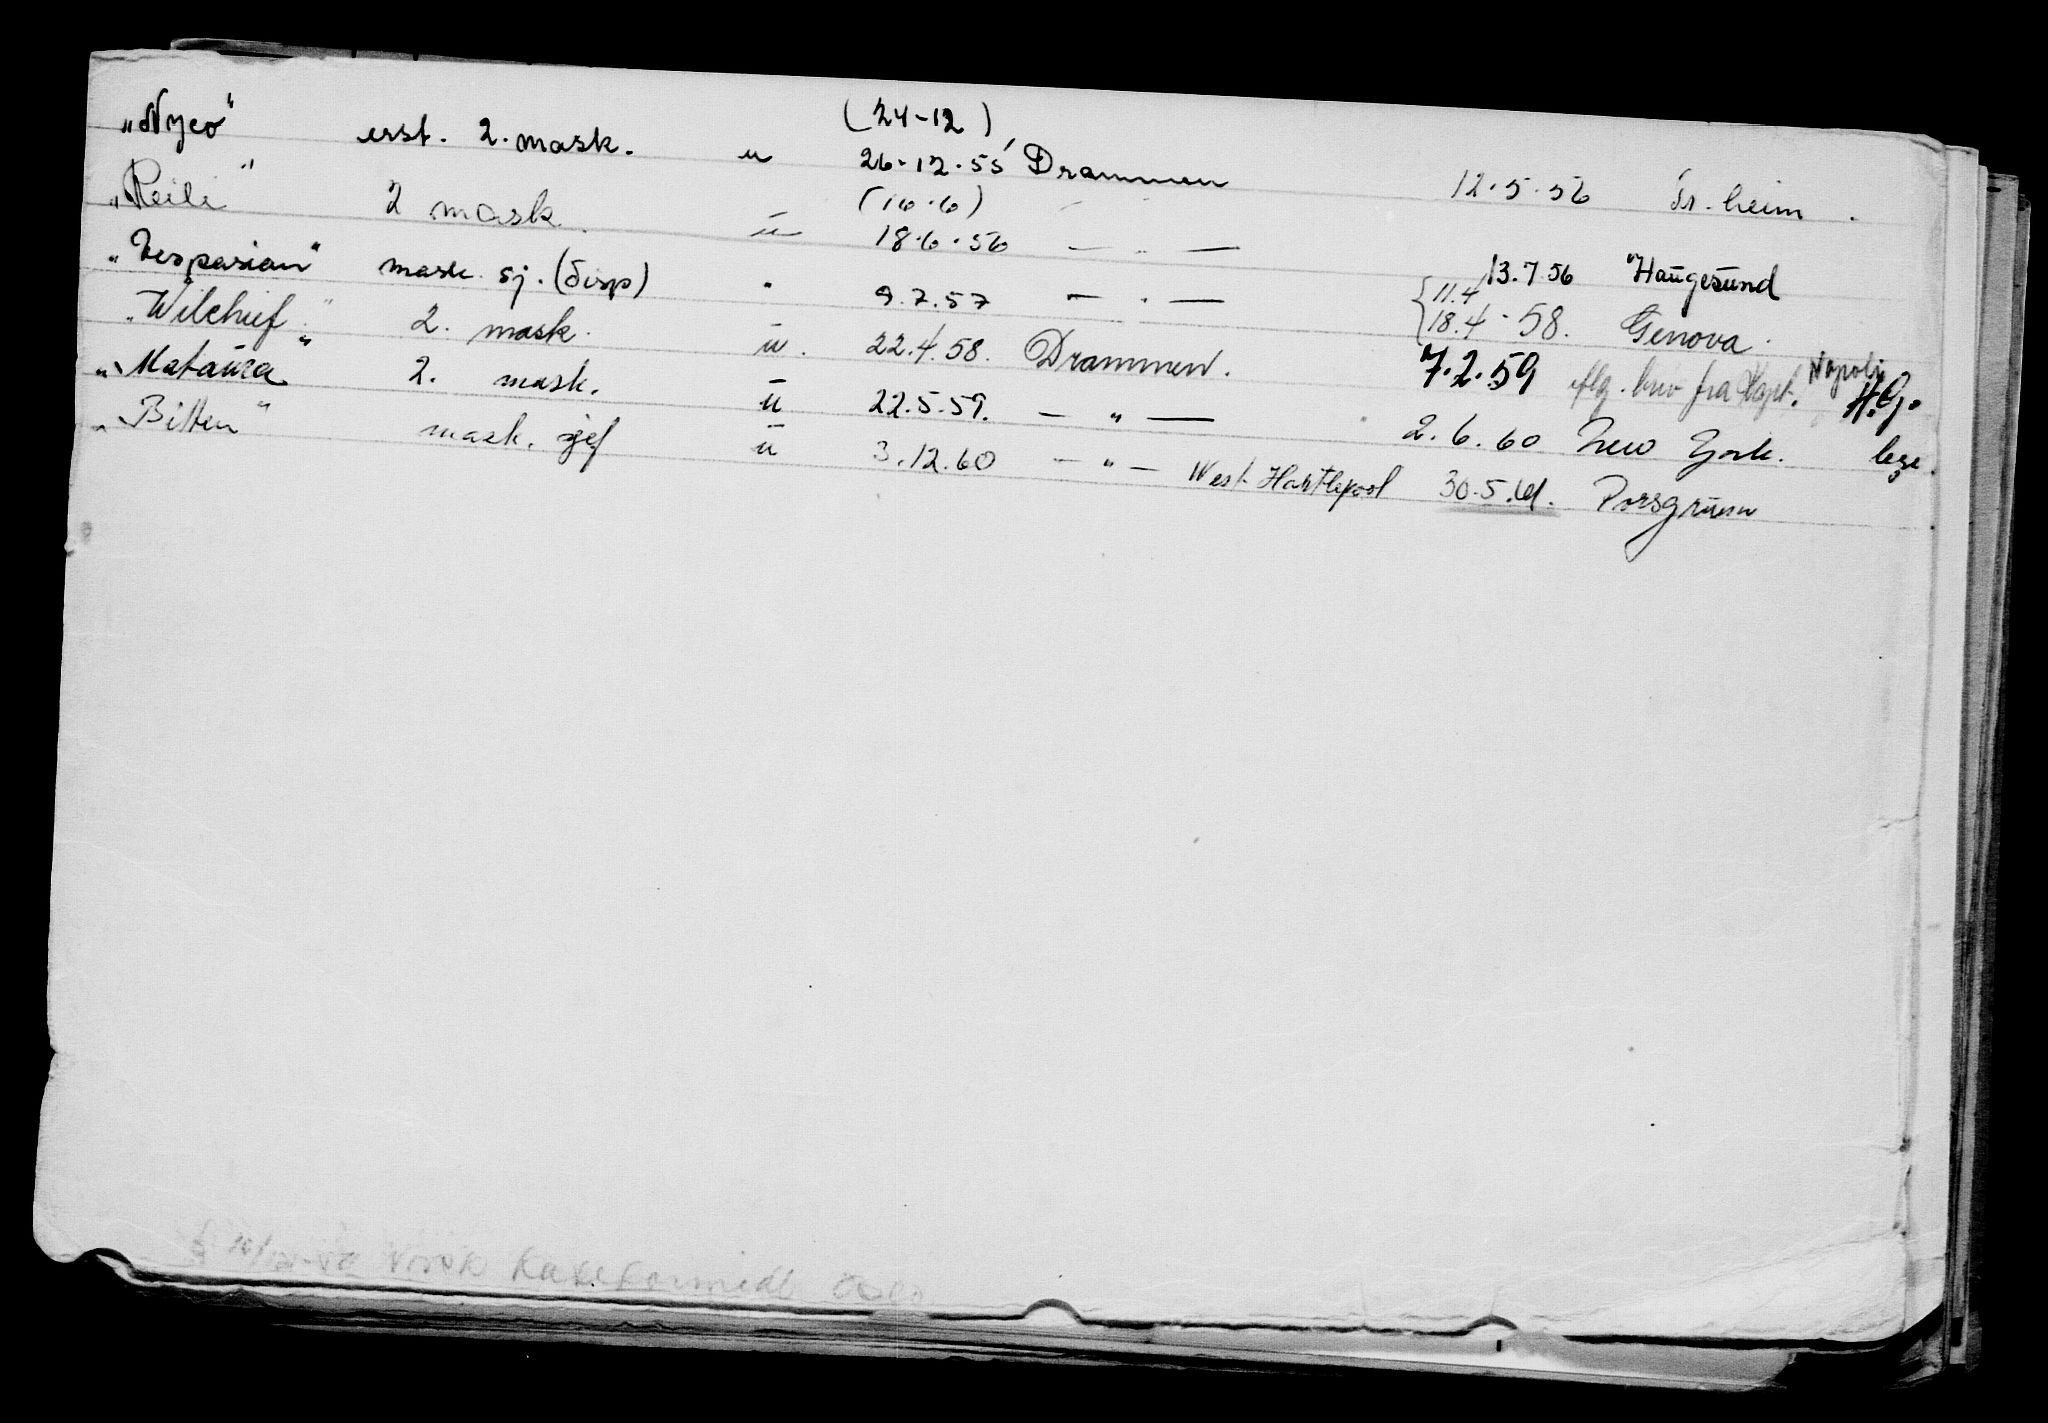 (24-12)
"Nyco" erst. 2. mask. u 26-12-55 Drammen 12-5-56 Tr.heim.
(16-6)
"Reili" 2 mask. u 18-6-56 — " — 13.7.56 Haugesund
"Vespasian" mask. sj. (disp) " 9.7.57 — " — {11.4 18.4-58. Genova.
"Wilchief" 2. mask. u. 22.4.58. Drammen. 7.2.59 iflg. brev fra Kapt. Napoli H.G.
"Mataura" 2. mask. u 22.5.59. — " — 2.6.60 New York. lege.
"Bitten" mask. sjef u 3.12.60 — " — West Hartlepool 30.5.61. Porsgrunn
Norsk Oslo